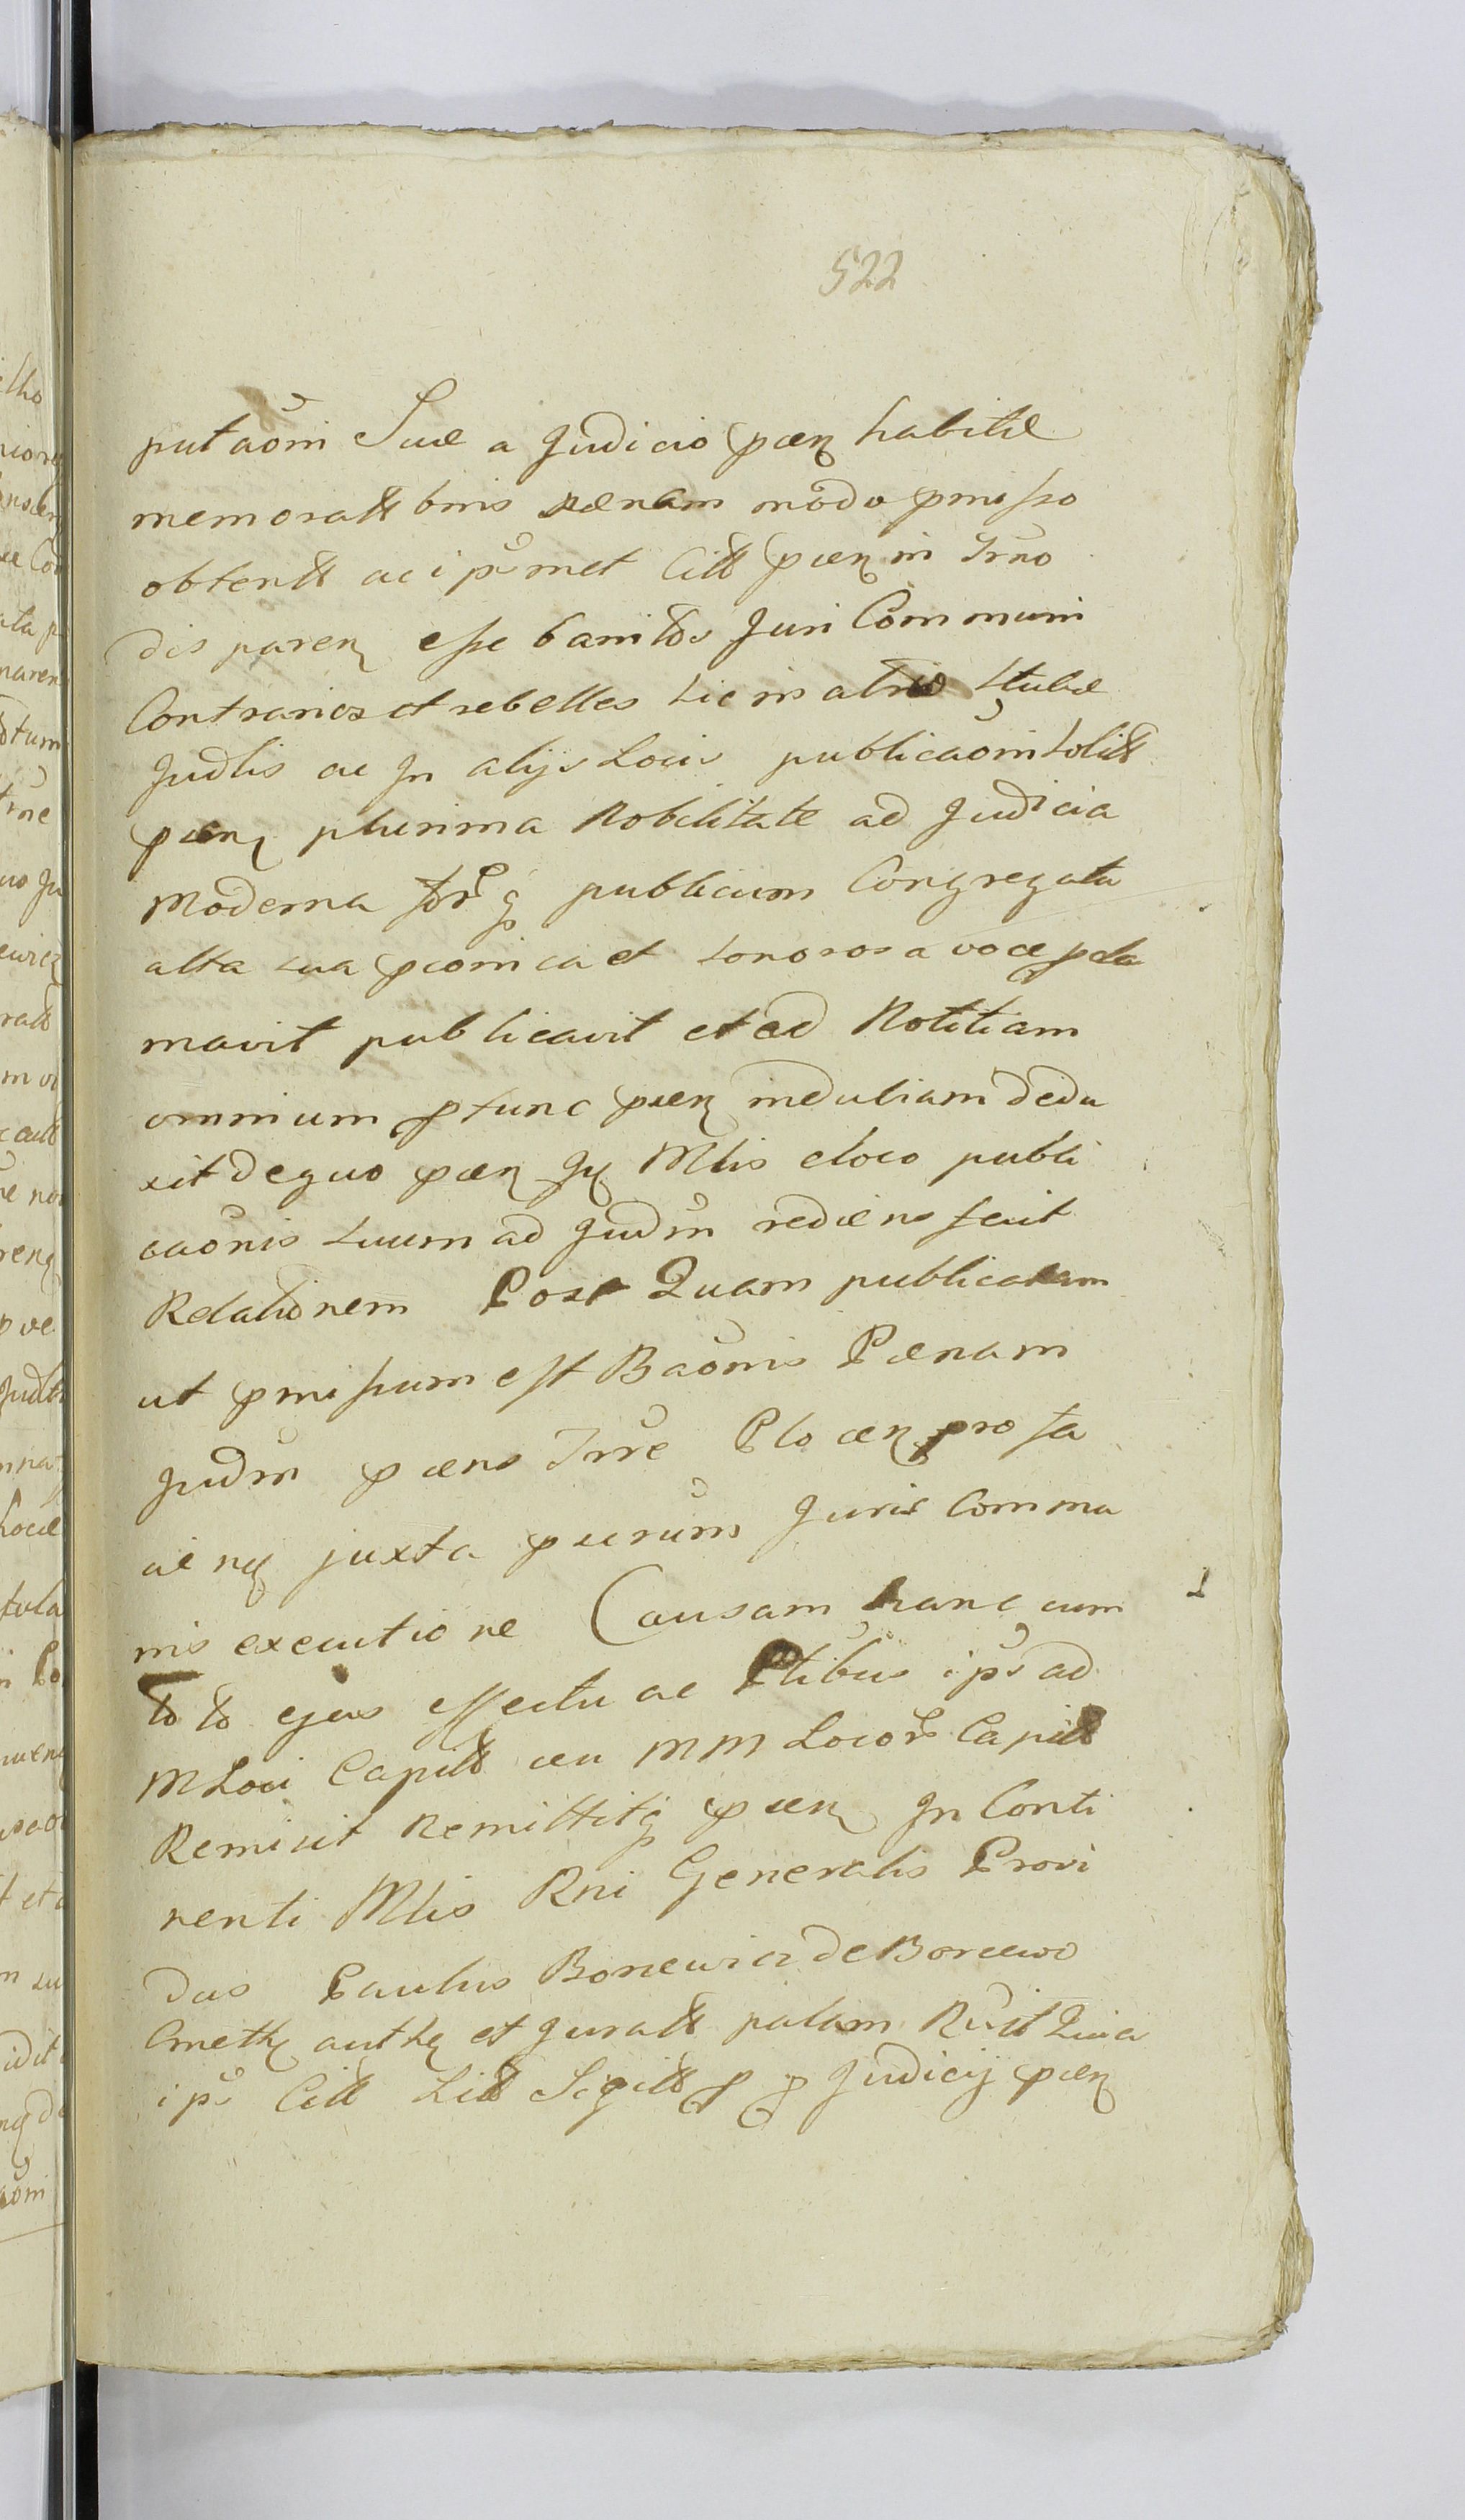 522
putaõni Suæ a Judicio pñ habitæ
memoratt bnis pænam modo pmisso
obtentt ac ipsmet Citt pñ in Trno
dis paren esse banitos Juri Communi
Contrarios et rebelles hic in atrio Stubæ
Judlis ac In alijs Locis publicaõni solitt
pñ plurima Nobilitate ad Judicia
Moderna publicum Congregata
alta sua pconica et sonorosa voce pcla
mavit publicavit et ad Notitiam
omnium ptunc pñ indubiam dedu
xit de quo pñ Mlis e loco publi
caõnis suum ad Judm rediens fecit
Relationem Post Quam publicatam
ut pmissum est Baõnis Pænam
Judm pñs Trre Plocen pro fa
cienda juxta pscrum Juris Commu
nis executione Causam hanc cum
toto ejus effectu ac Ptibus ips ad
M Loci Capitt seu MM Locor Capitt
Remisit Remittitq pñ In Conti
nenti Mlis Rni Generalis Provi
dus Paulus Boncwicz de Borcewo
auth et Juratt palam Quia
ips Citt Litt Sigitt Judicij pñ